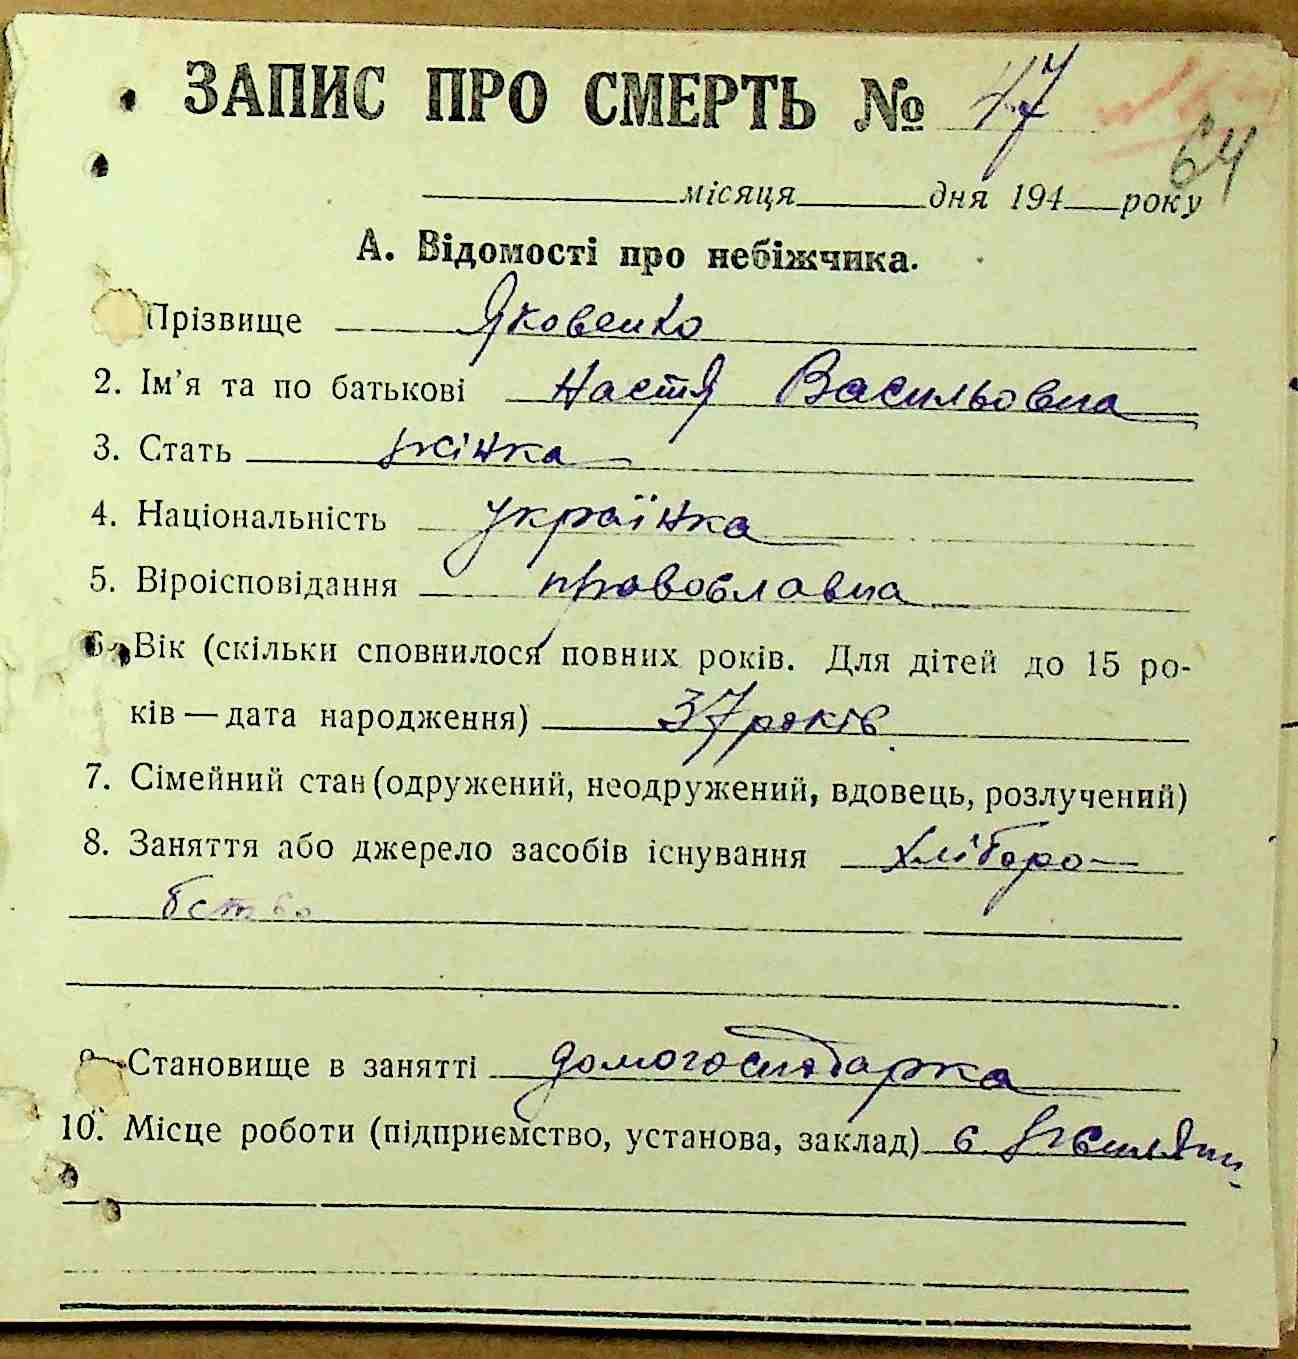 ЗАПИС ПРО СМЕРТЬ № 47
64
місяця дня 194 року
А. Відомості про небіжчика.
Прізвище Яковенко
2. Ім'я та по батькові Настя Васильовна
3. Стать жінка
4. Національність українка
5. Віроісповідання православна
6. Вік (скільки сповнилося повних років. Для дітей до 15 ро-
ків — дата народження) 37 років
7. Сімейний стан (одружений, неодружений, вдовець, розлучений)
8. Заняття або джерело засобів існування хліборо-
бство
9. Становище в занятті домогосподарка
10. Місце роботи (підприємство, установа, заклад) с.